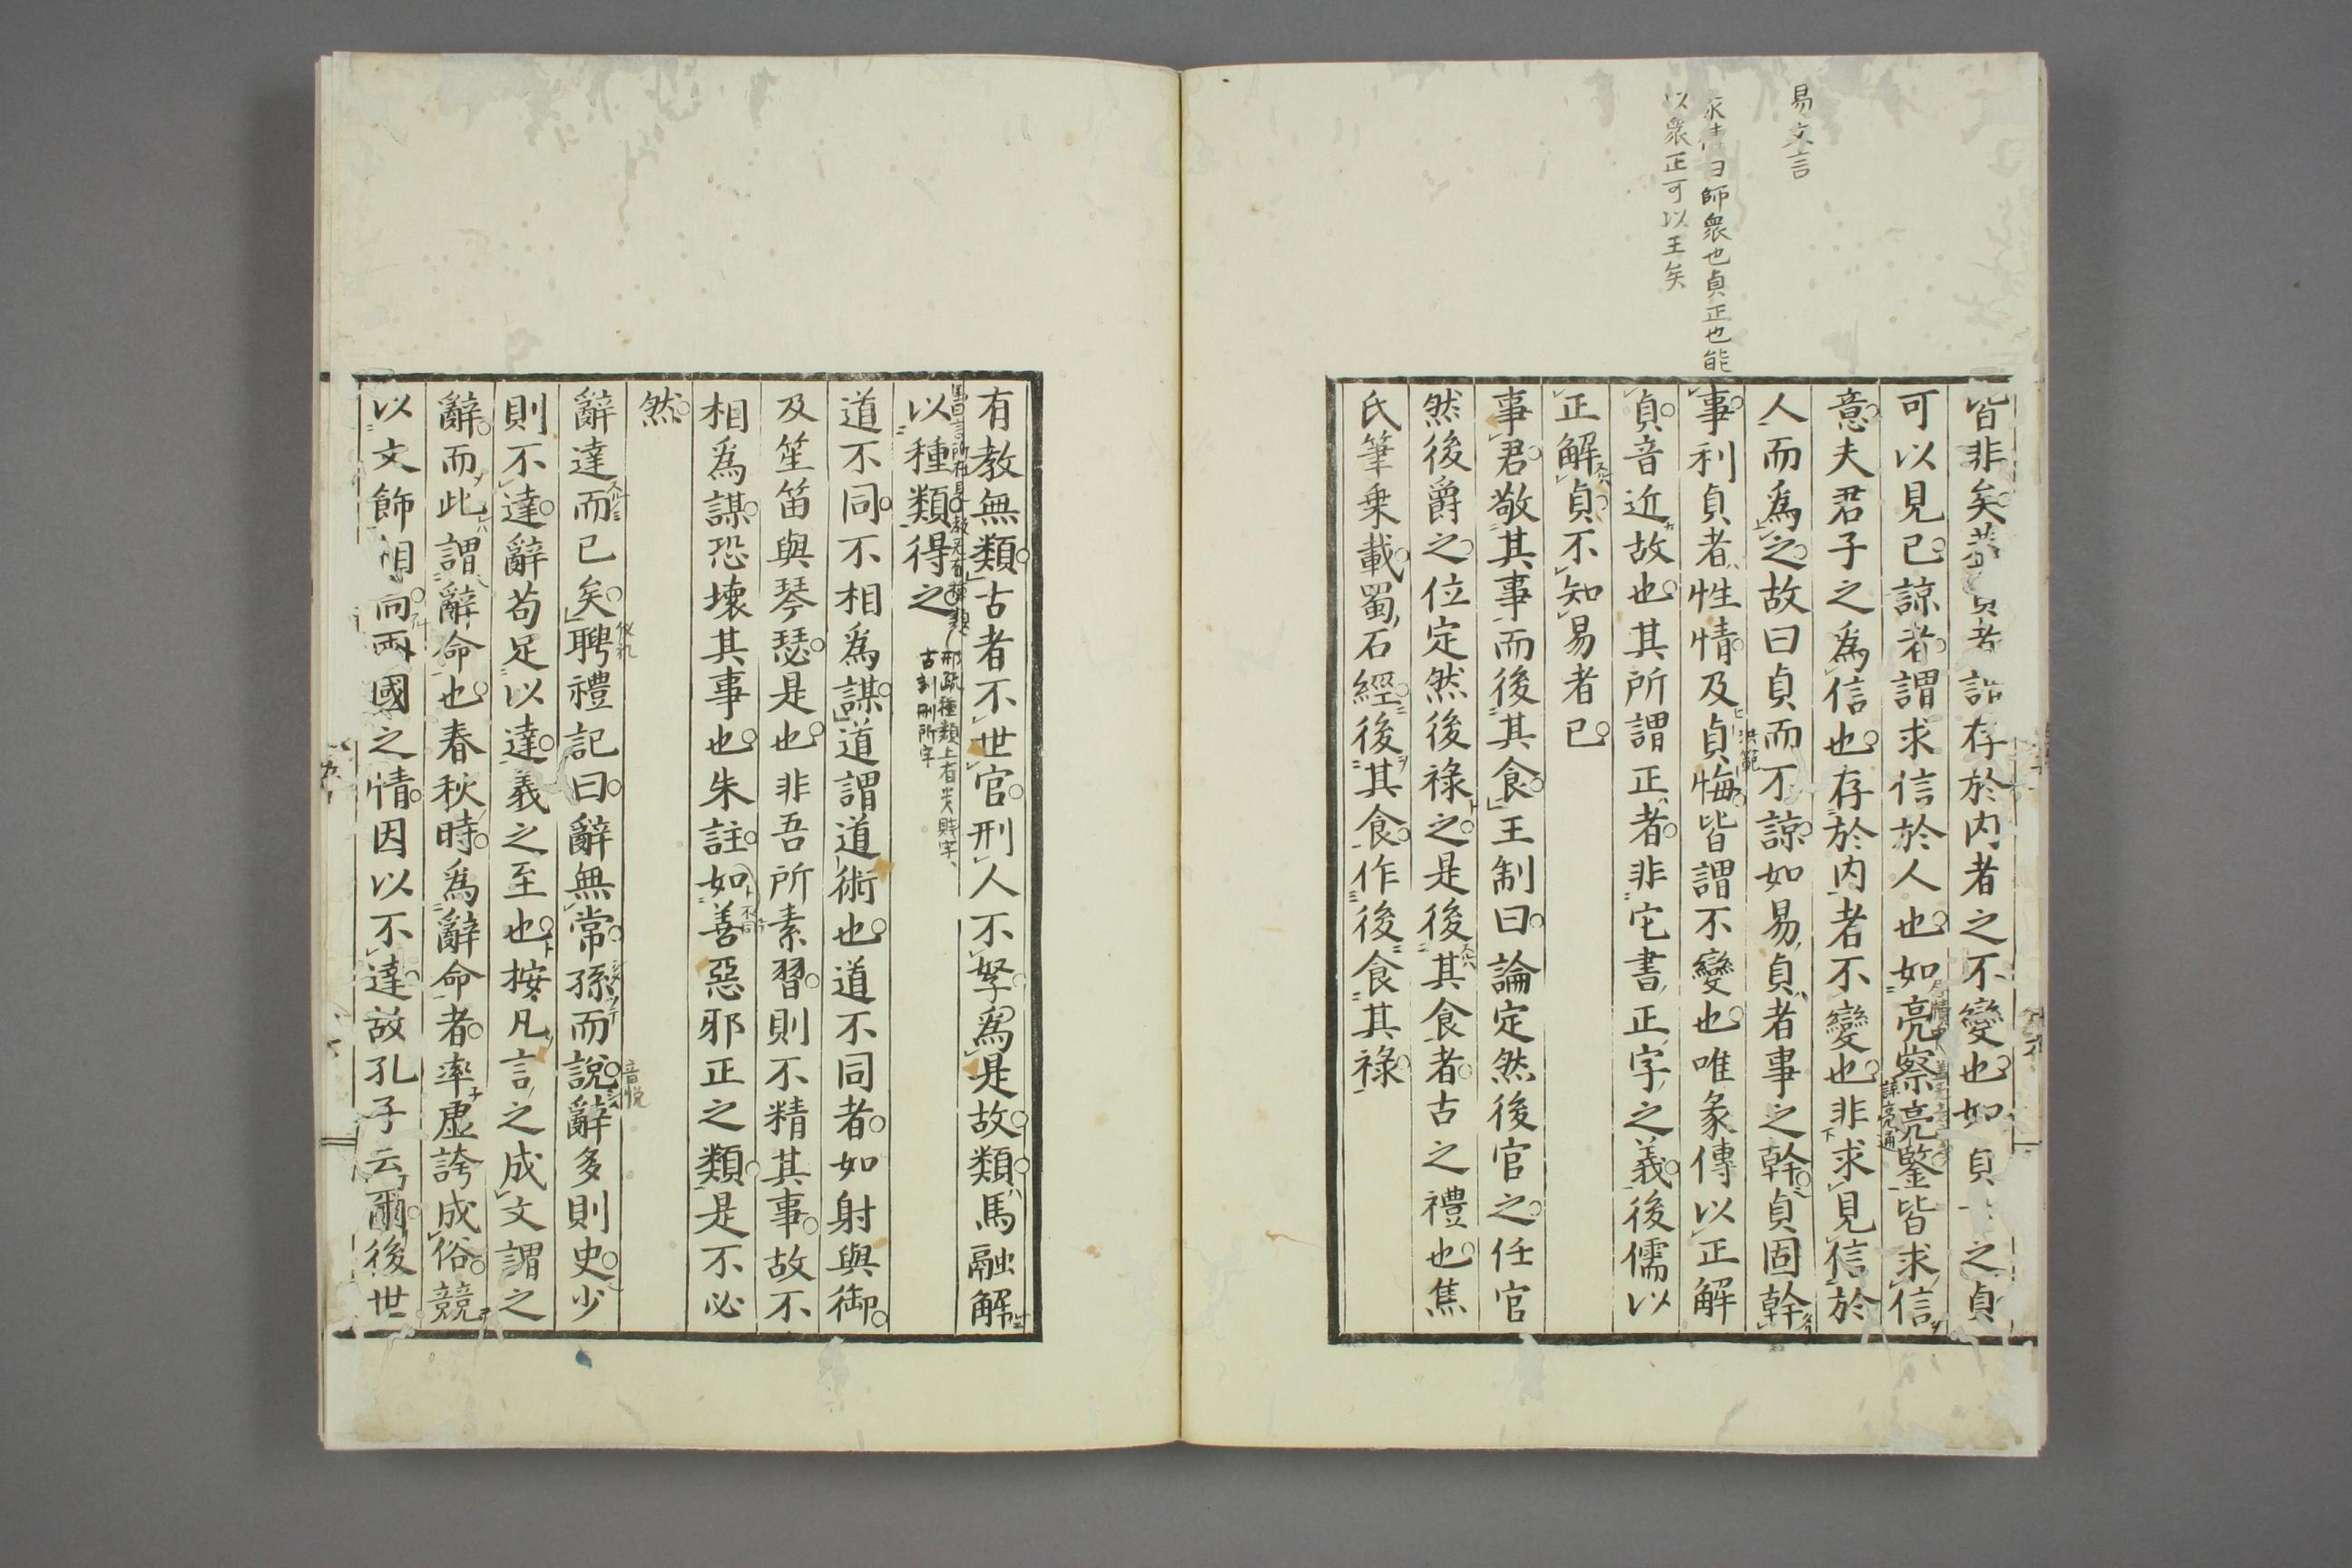 易文言
曰師衆也貞正也能
以衆正可以王矣
皆非矣蓋貞者謂存於内者之不變也如貞之貞
可以見已諒者謂求信於人也如亮察亮鑒皆求信
諒亮通
意夫君子之爲信也存於内者不變也非求見信於
人而爲之故曰貞而不諒如易貞者事之幹貞固幹
洪範
事利貞者性情及貞悔皆謂不變也唯彖傳以正解
貞音近故也其所謂正者非它書正字之義後儒以
正解貞不知易者已
事君敬其事而後其食王制曰論定然後官之任官
然後爵之位定然後祿之是後其食者古之禮也焦
氏筆乗載蜀石經後其食作後食其祿
有教無類古者不世官刑人不孥爲是故類馬融解
馬曰言所在見教无有種類
邢疏種類上有貴賤字
古刻刪所字
以種類得之
道不同不相爲謀道謂道術也道不同者如射與御
及笙笛與琴瑟是也非吾所素習則不精其事故不
相爲謀恐壞其事也朱註如善惡邪正之類是不必
不同
然
辭達而已矣聘禮記曰辭無常孫而說辭多則史少
音悅
則不達辭苟足以達義之至也按凡言之成文謂之
辭而此謂辭命也春秋時爲辭命者率虚誇成俗競
以文飾相向兩國之情因以不達故孔子云爾後世